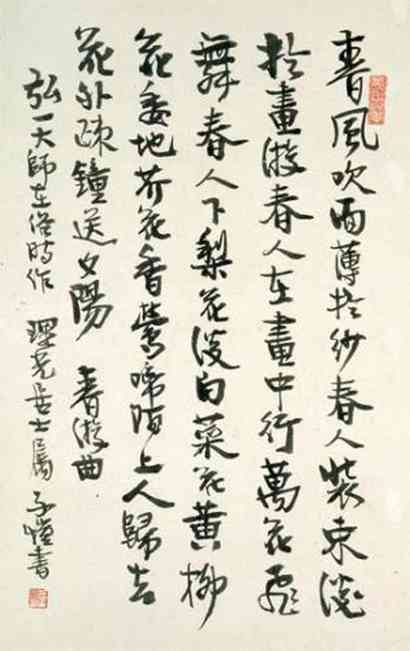 春風吹面薄於紗春人裝束淡
於畫游春人在畫中行萬花飛
舞春人下梨花淡白菜花黃柳
花委地芥花香鶯啼陌上人歸去
花外疎鐘送夕陽 春游曲
弘一大師在俗時作 居士屬 子愷書